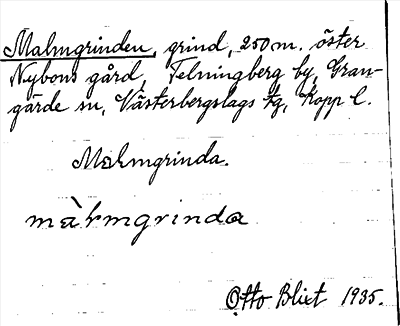 Malmgrinden, grind, 250 m. öster
Nybons gård, Telningberg by, Gran-
gärde sn, Västerbergslags tg, Kopp l.
Malmgrinda.
màlmgrinda
Otto Blixt 1935.